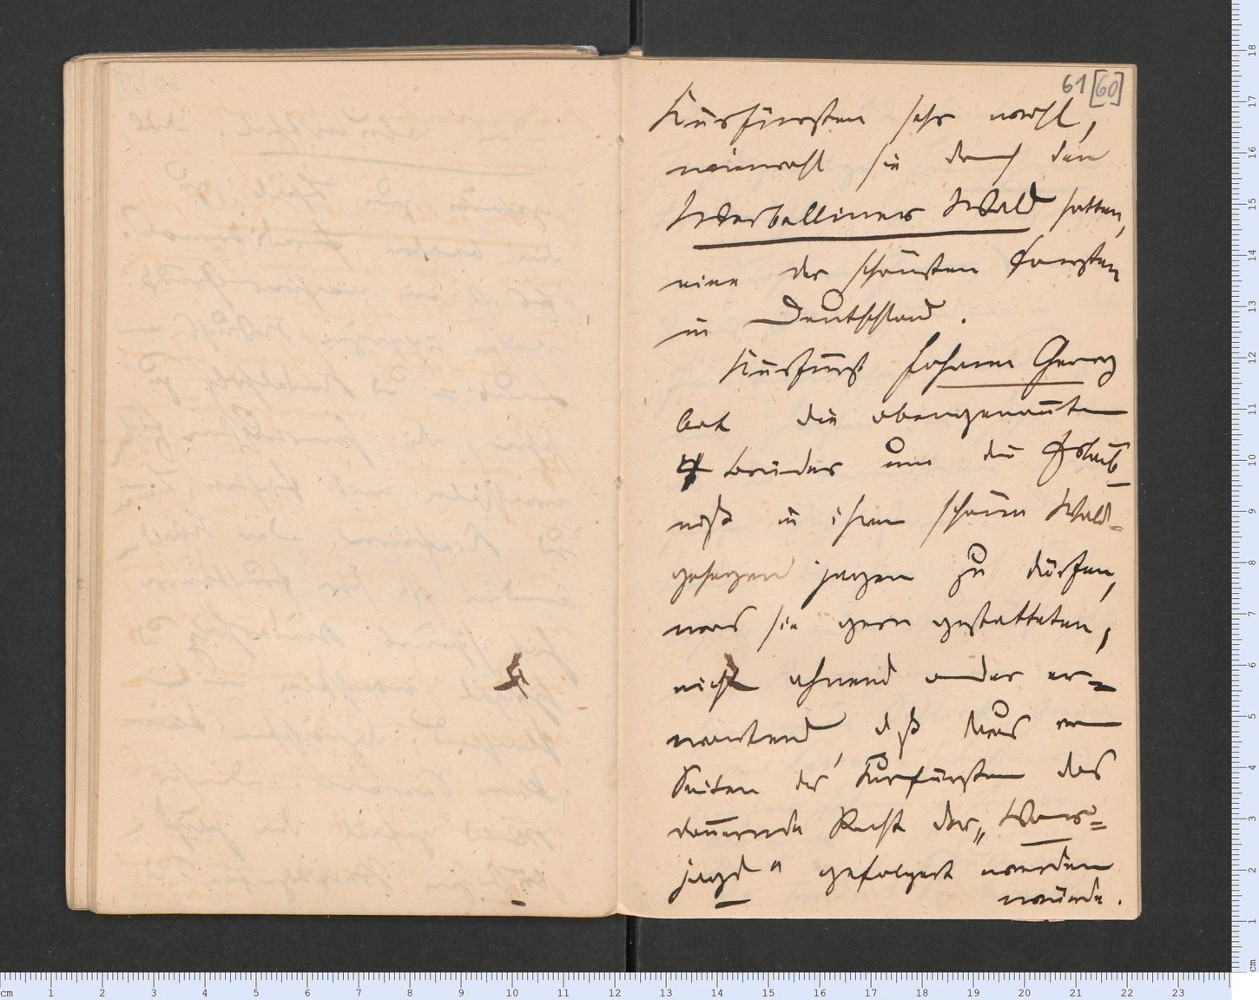 61 [60]
Kurfürsten sehr wohl,
wiewohl sie durch den
Werbelliner Wald hatten,
eine der schönsten Forsten
in Deutschland.
Kurfürst Johann Georg
bat die obengenannten
4 Brüder um die Erlaub-
niß in ihren schönen Wald-
gehegen jagen zu dürfen,
was sie gern gestatteten,
nicht ahnend oder er-
wartend, daß draus von
Seiten des Kurfürsten das
dauernde Recht der „Vor-
jagd" gefolgert werden
würde.